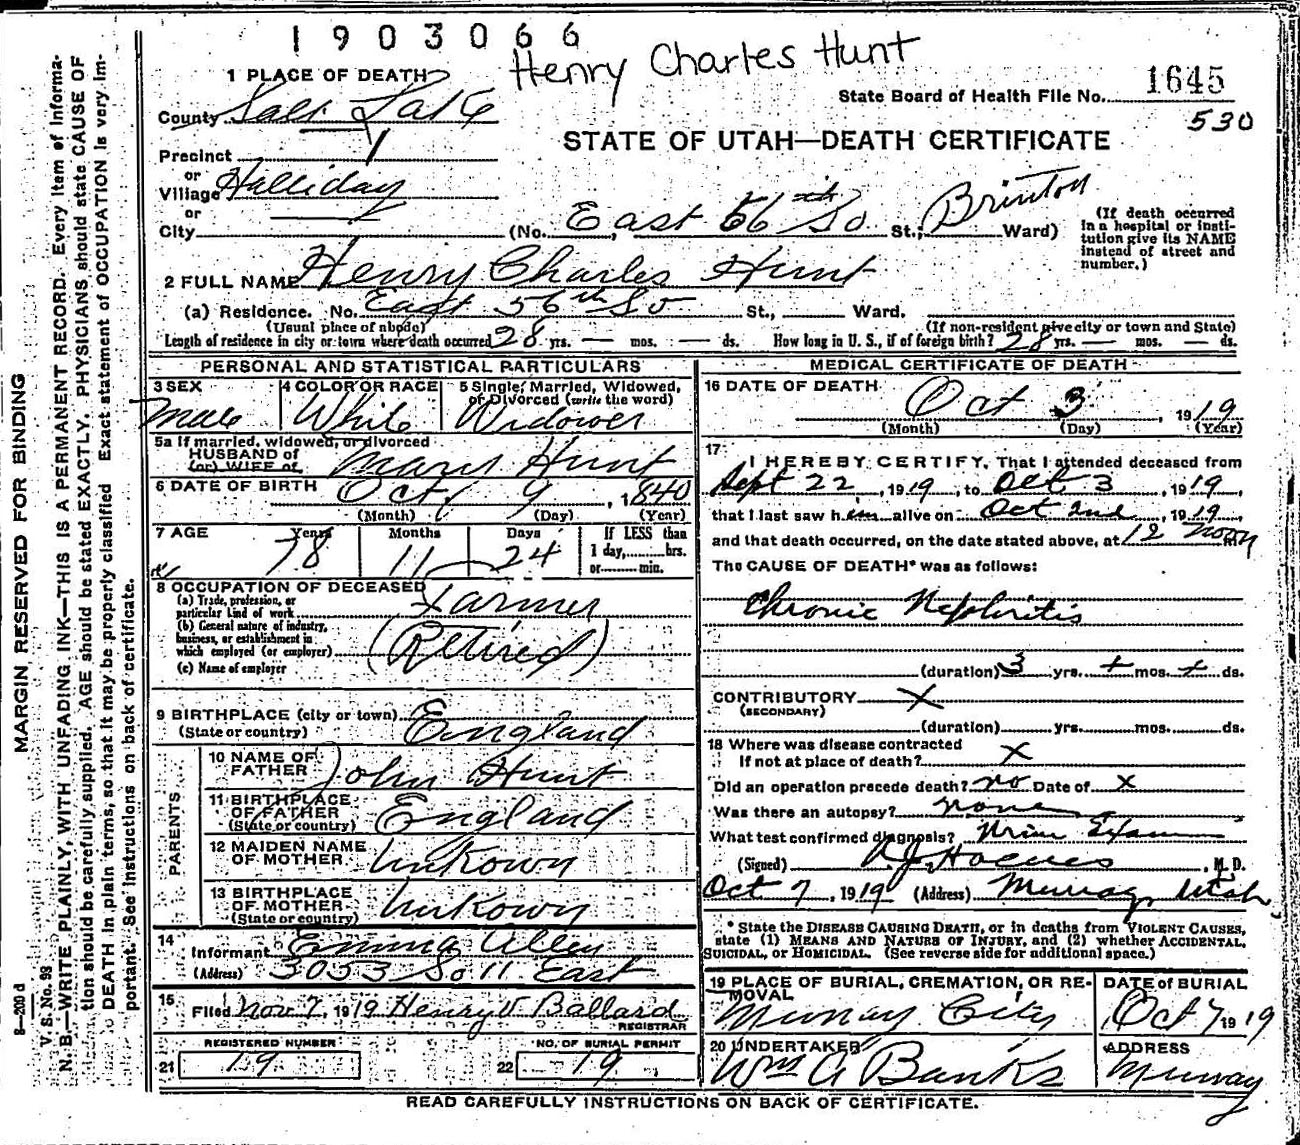 1903066
Henry Charles Hunt
1 PLACE OF DEATH
State Board of Health File No. 1645
530
County Salt Lake
STATE OF UTAH—DEATH CERTIFICATE
Precinct 1
or
Village Halliday
or
City (No. East 56th So St.; Brinton Ward)
(If death occurred in a hospital or institution give its NAME instead of street and number.)
2 FULL NAME Henry Charles Hunt
(a) Residence. No. East 56th So St., Ward.
(Usual place of abode) (If non-resident give city or town and State)
Length of residence in city or town where death occurred 28 yrs. — mos. — ds. How long in U. S., if of foreign birth? 28 yrs. — mos. — ds.
PERSONAL AND STATISTICAL PARTICULARS
3 SEX
Male
4 COLOR OR RACE
White
5 Single, Married, Widowed, or Divorced (write the word)
Widower
5a If married, widowed, or divorced
HUSBAND of
(or) WIFE of
Mary Hunt
6 DATE OF BIRTH Oct 9, 1840
(Month) (Day) (Year)
7 AGE Years Months Days If LESS than
78 11 24 1 day, hrs.
or min.
8 OCCUPATION OF DECEASED
(a) Trade, profession, or
particular kind of work Farmer
(b) General nature of industry,
business, or establishment in
which employed (or employer) (Retired)
(c) Name of employer
9 BIRTHPLACE (city or town)
(State or country) England
PARENTS
10 NAME OF
FATHER John Hunt
11 BIRTHPLACE
OF FATHER England
(State or country)
12 MAIDEN NAME
OF MOTHER Unkown
13 BIRTHPLACE
OF MOTHER Unkown
(State or country)
14
Informant Emma Allen
(Address) 3053 So 11 East
15
Filed Nov 7, 1919 Henry V Ballard
REGISTRAR
REGISTERED NUMBER NO. OF BURIAL PERMIT
21 19 22 19
MEDICAL CERTIFICATE OF DEATH
16 DATE OF DEATH
Oct 3, 1919
(Month) (Day) (Year)
17
I HEREBY CERTIFY, That I attended deceased from
Sept 22, 1919, to Oct 3, 1919,
that I last saw him alive on Oct 2nd, 1919,
and that death occurred, on the date stated above, at 12 noon
The CAUSE OF DEATH* was as follows:
Chronic Nephritis
(duration) 3 yrs. + mos. + ds.
CONTRIBUTORY X
(SECONDARY)
(duration) yrs. mos. ds.
18 Where was disease contracted
If not at place of death? X
Did an operation precede death? no Date of X
Was there an autopsy? none
What test confirmed diagnosis? Urin Exam
(Signed) , M. D.
Oct 7, 1919 (Address) Murray, Utah
* State the DISEASE CAUSING DEATH, or in deaths from VIOLENT CAUSES,
state (1) MEANS AND NATURE OF INJURY, and (2) whether ACCIDENTAL,
SUICIDAL, or HOMICIDAL. (See reverse side for additional space.)
19 PLACE OF BURIAL, CREMATION, OR RE-
MOVAL
Murray City
DATE of BURIAL
Oct 7 1919
20 UNDERTAKER
Wm A Banks
ADDRESS
Murray
READ CAREFULLY INSTRUCTIONS ON BACK OF CERTIFICATE.
MARGIN RESERVED FOR BINDING
8—200 d
V. S. No. 93
N. B.—WRITE PLAINLY, WITH UNFADING INK—THIS IS A PERMANENT RECORD. Every item of informa-
tion should be carefully supplied. AGE should be stated EXACTLY. PHYSICIANS should state CAUSE OF
DEATH in plain terms, so that it may be properly classified. Exact statement of OCCUPATION is very im-
portant. See instructions on back of certificate.